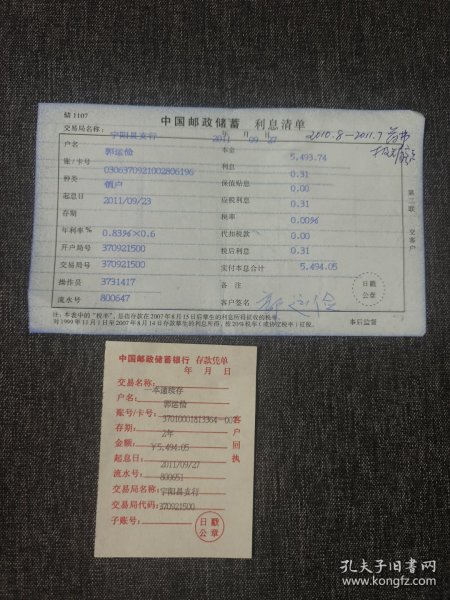 储 1107
中国邮政储蓄 利息清单
交易局名称: 宁阳县支行 2011 年 09 月 27 日
2010.8—2011.7
户名 郭运俭 本金 5,493.74
账/卡号 0306370921002806196 利息 0.31
种类 债户 保值贴息 0.00
起息日 2011/09/23 应税利息 0.31
存期 税率 0.00%
年利率% 0.83%×0.6 代扣税款 0.00
开户局号 370921500 税后利息 0.31
交易局号 370921500 实付本息合计 5,494.05
操作员 3731417 备注
流水号 800647 客户签名 郭运俭
日戳
公章
第二联 交客户
注:本表中的“税率”,是指存款在2007年8月15日后孳生的利息所得征收的税率。
对1999年11月1日至2007年8月14日存款孳生的利息所得,按20%税率(或协定税率)征税。
事后监督
中国邮政储蓄银行 存款凭单
年 月 日
交易名称: 一本通续存
户名: 郭运俭
账号/卡号: 37010001813364-002
存期: 2年
金额: ¥5,494.05
起息日: 2011/09/27
流水号: 800651
交易局名称: 宁阳县支行
交易局代码: 370921500
子账号:
客户回执
日戳
公章
孔夫子旧书网
www.kongfz.com